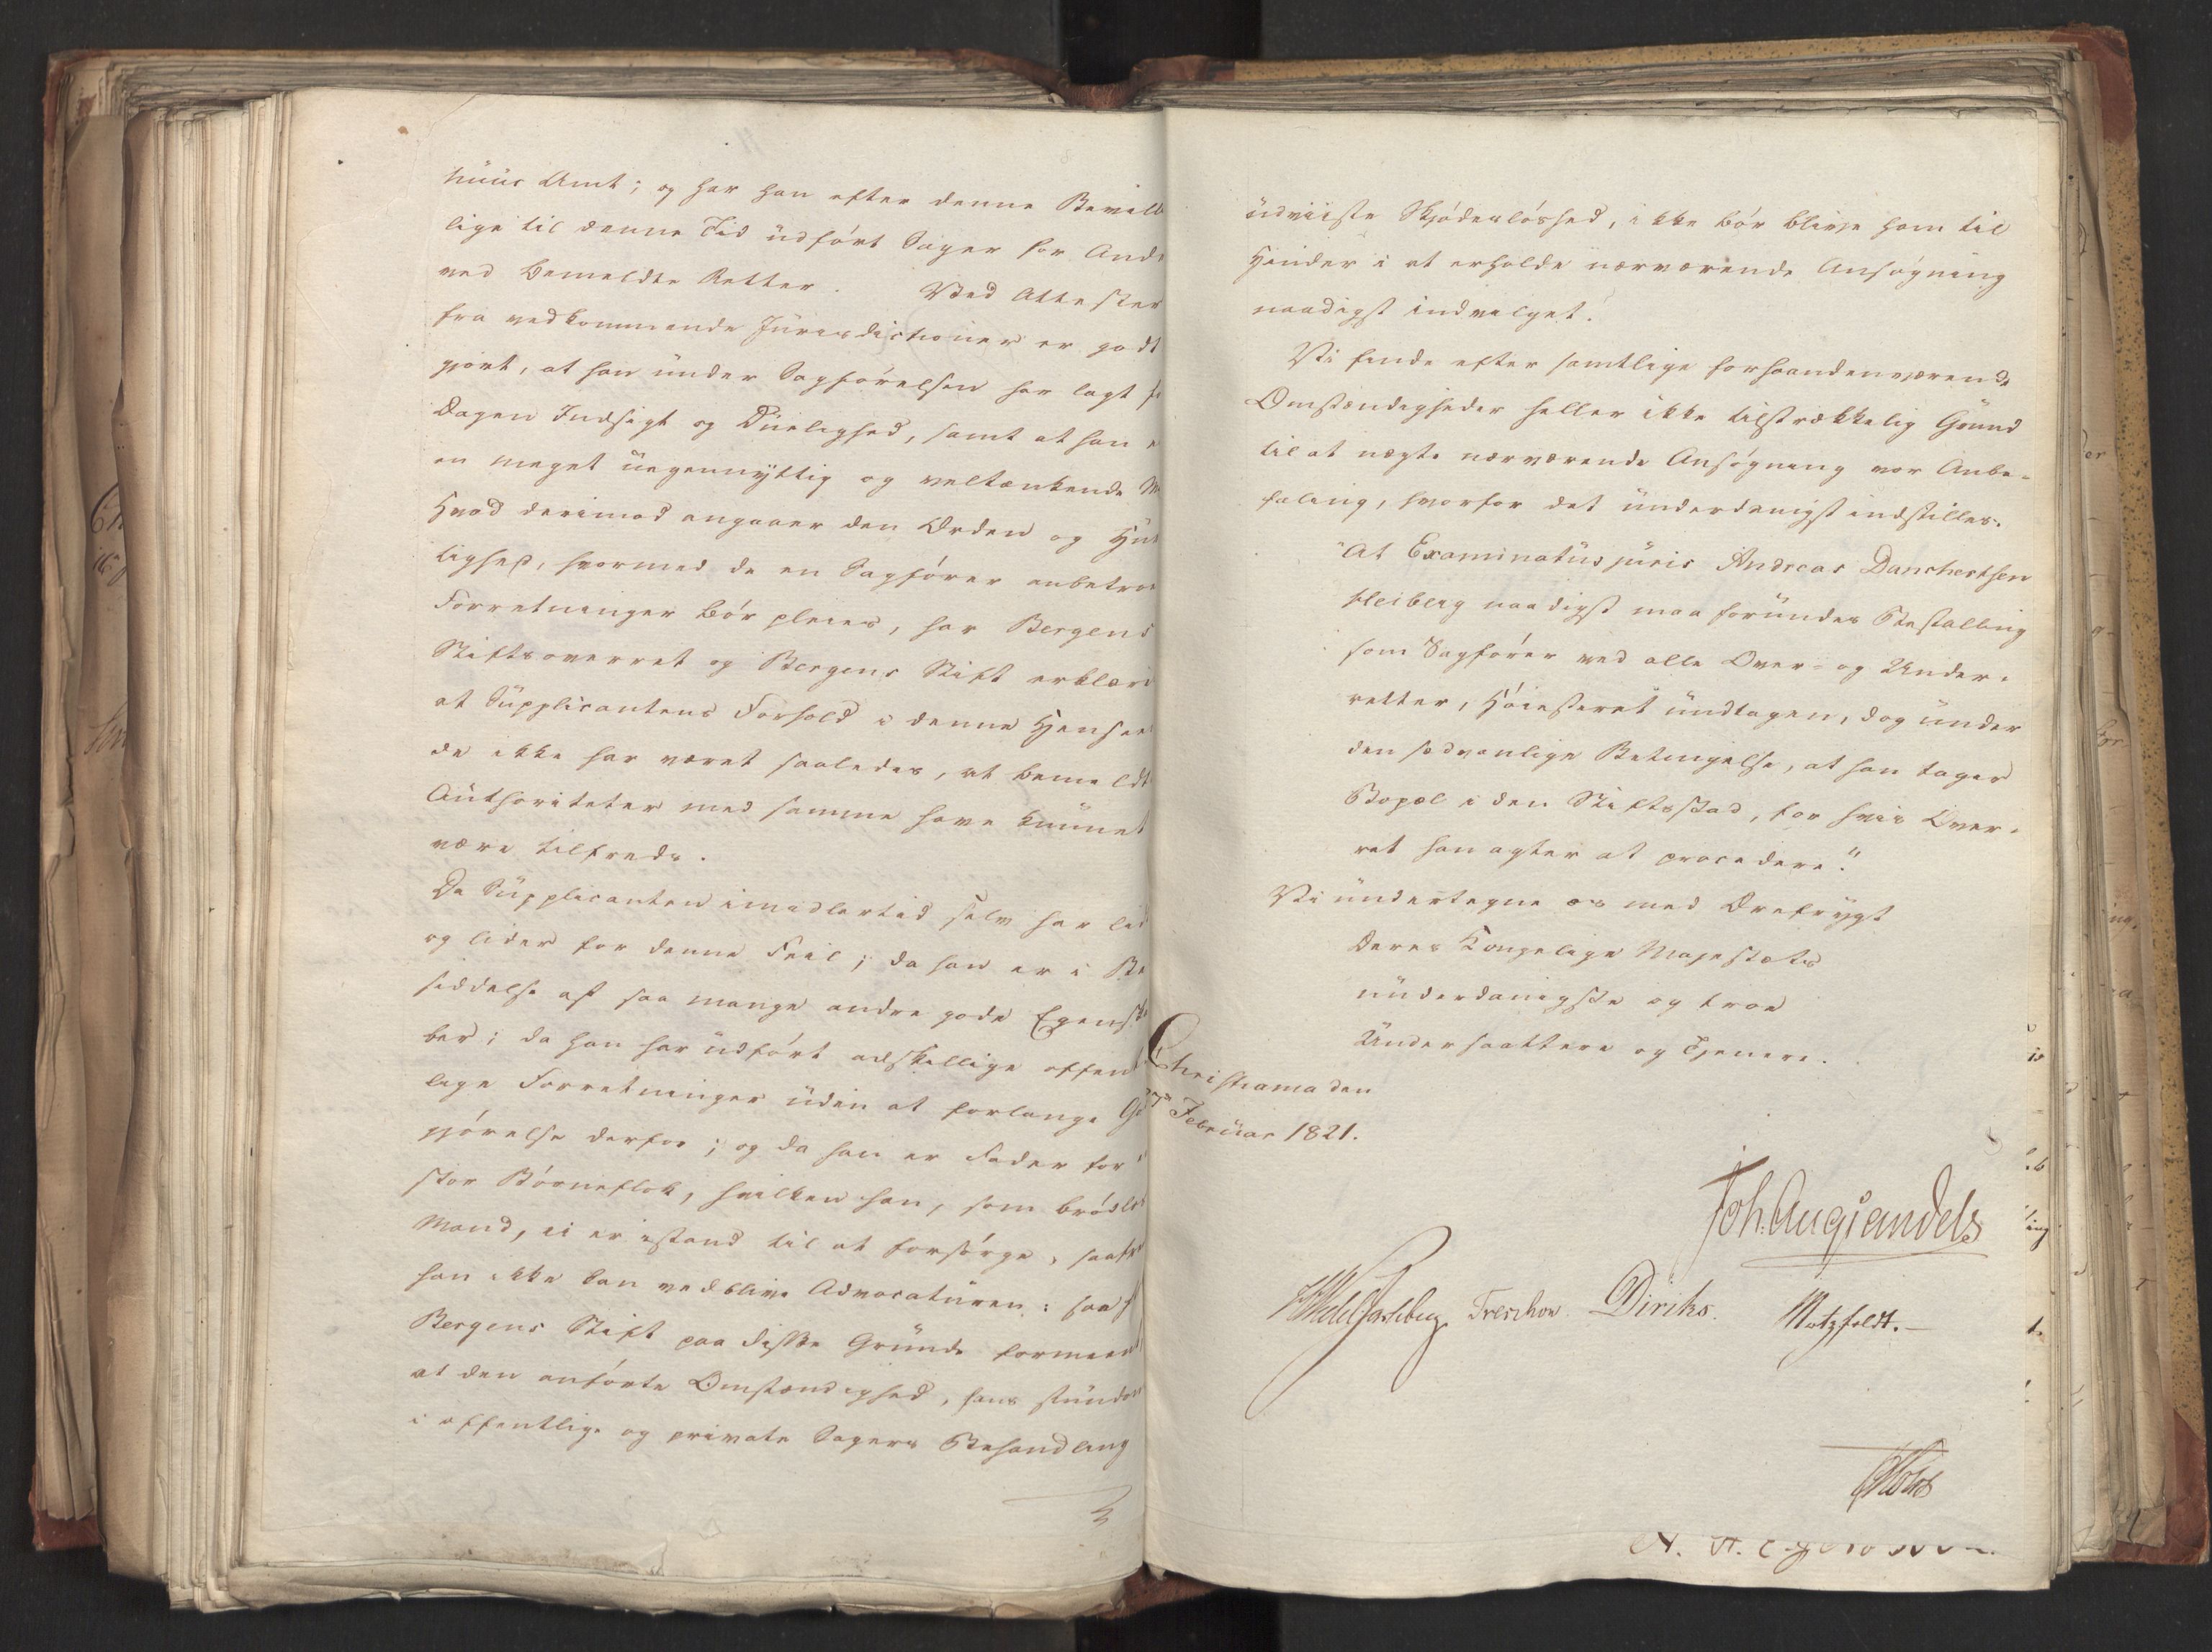 huus Amt; og har han efter denne Bevill
lige til denne Tid üdført Sager for And
ved bemeldte Retter. Ved Attester
fra vedkommende Jürisdictioner er godt
gjort, at han ünder Sagførelsen har lagt f
Dagen Indsigt og Düelighed, samt at han e
en meget üegennyttig og veltænkende M
Hvad derimod angaaer den Orden og Hür
tighed, hvormed de en Sagfører anbetroe
Forretninger bør pleies, har Bergens
Stiftsoverret og Bergens Stift erklæri
at Süpplicantens Forhold i denne Hensee
de ikke har været saaledes, at bemeldt
Aüthoriteter med samme have künnet
være tilfreds.
Da Süpplicanten imidlertid selv har lid
og lider for denne Feil; da han er i Be
siddelse af saa mange andre gode Egensk
ber; da han har üdført adskillige offent
lige Forretninger üden at forlange Go
gjørelse derfor; og da han er Fader for
stor Børneflok, hvilken han, som brødløs
Mand, ei er istand til at forsørge, saafr
han ikke kan vedblive Advocatüren: saa h
Bergens Stift paa disse Gründe formeent
at den anførte Omstændighed, hans stündom
i offentlige og private Sagers Behandling
üdviiste Skjødesløshed, ikke bør blive ham til
Hinder i at erholde nærværende Ansøgning
naadigst indvilget.
Vi finde efter samtlige forhaandenværende
Omstændigheder heller ikke tilstrækkelig Gründ
til at nægte nærværende Ansøgning vor Anbe-
faling, hvorfor det ünderdanigst indstilles:
"At Examinatüs jüris Andreas Danchertsen
Heiberg naadigst maa foründes Bestalling
som Sagfører ved alle Over- og Under-
retter, Høiesteret ündtagen, dog ünder
den sædvanlige Betingelse, at han tager
Bopæl i den Stiftsstad, for hvis Over-
ret han agter at procedere."
Vi ündertegne os med Ærefrygt
Deres Kongelige Majestæts
ünderdanigste og troe
Ündersaattere og Tjenere.
Christiania den
Februar 1821.
Joh. Aug. Sandels
Treschow. Diriks. Motzfeldt.
Holst